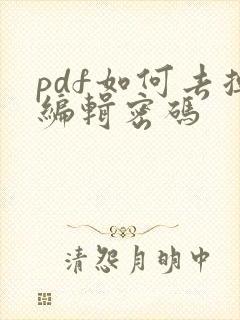 pdf如何去掉
编辑密码
清怨月明中